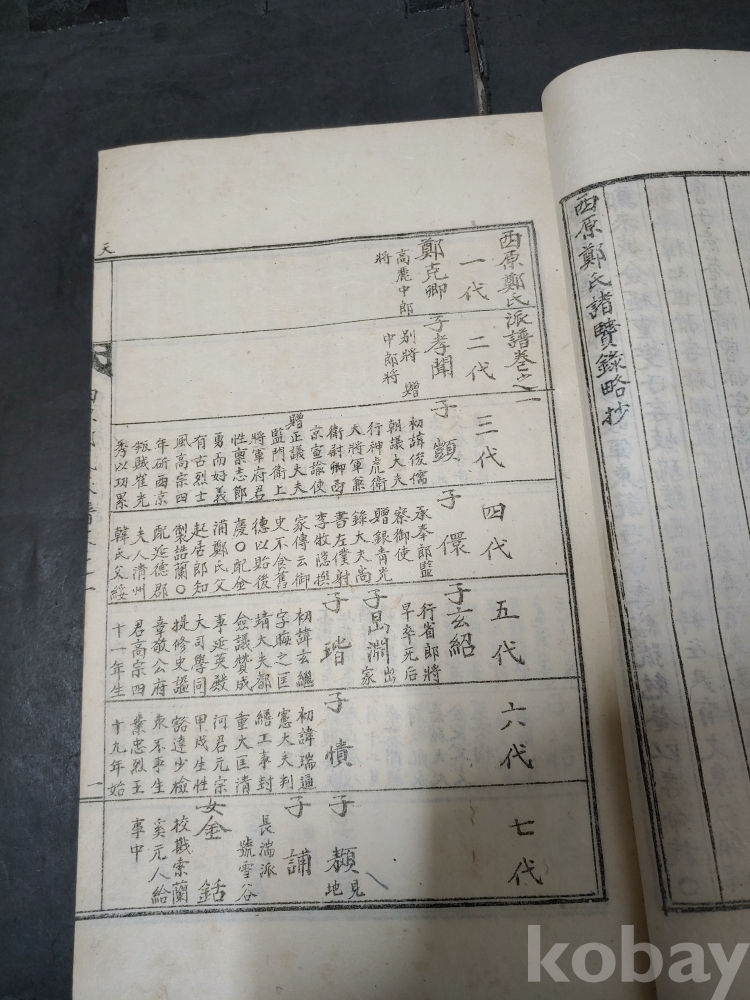 西原鄭氏諸賢錄略抄
西原鄭氏派譜卷之一
一代
鄭克卿
高麗中郎
將
二代
子孝聞
別將 贈
中郎將
三代
子顗
初諱俊儒
朝議大夫
行神虎衛
大將軍兼
衛尉卿西
京宣諭使
贈正議大夫
監門衛上
將軍府君
性禀志節
勇而好義
有古烈士
風高宗四
年斫西京
叛賊崔光
秀以功累
四代
子儇
承奉郎監
察御使
贈銀青光
祿大夫尚
書左僕射
李牧隱撰
家傳云御
史不食舊
德以貽後
慶○配金
浦鄭氏父
起居郎知
製誥蘭○
配延德郡
夫人清州
韓氏父綏
五代
子玄紹
行省郎將
早卒无后
子昷淵出
家
子瑎
初諱玄繼
字晦之匡
靖大夫都
僉議贊成
事延英殿
大司學同
提修史謚
章敬公府
君高宗四
十一年生
六代
子㥽
初諱瑞通
憲大夫判
繕工事封
重大匡清
河君元宗
甲戌生性
豁達少檢
束不事生
業忠烈王
十九年始
七代
子䫨見
地
子誧
長湍派
號雪谷
女金銛
校戡索蘭
奚元人給
事中
天
一
kobay